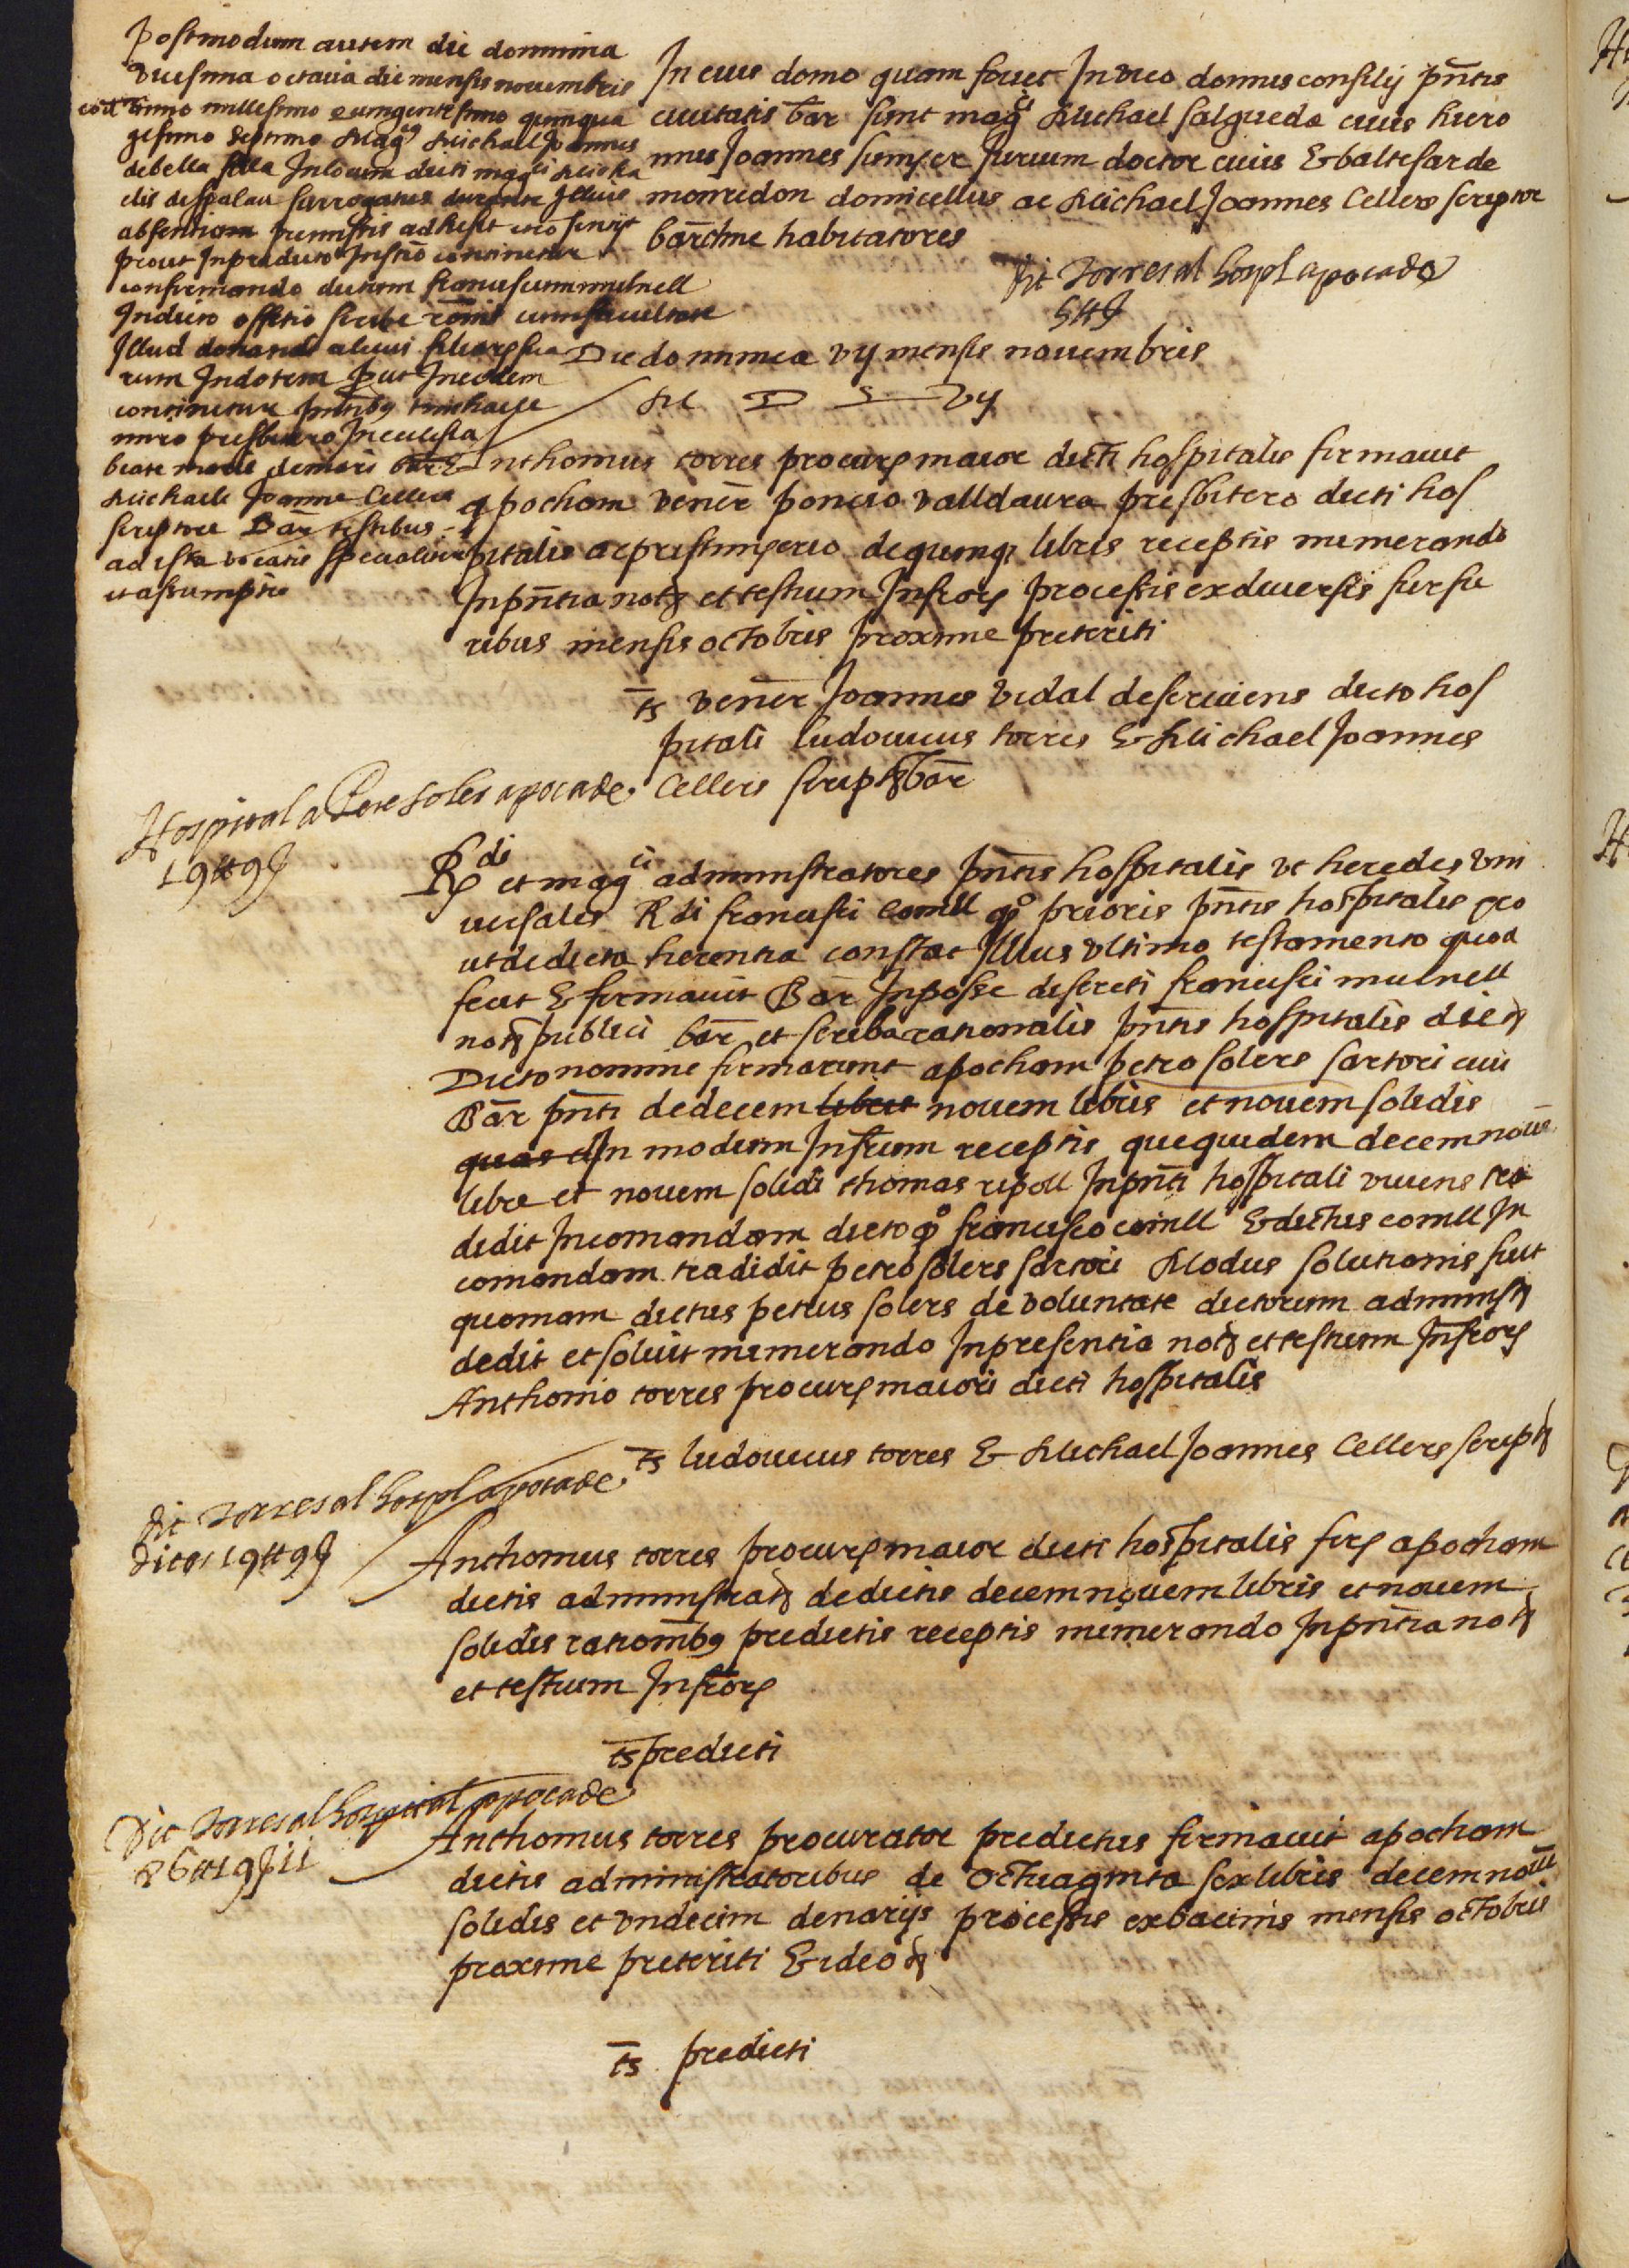 Postmodum autem die dominina
vicesima octava die mensis novembris
anno millesimo quingentesimo quinqua
gesimo septimo Magcus Michael Joannes
debella filla Inlocum dicti magci Micha
elis despalau surrogatus durante Illius
absentiam premissis adhesit
prout Inpredicto Instro continetur
confirmando dictum franciscum mulnell
Indicto offitio scribe
Illud donandi alicui filiarum sua
rum Indotem put Ineodem
continetur pntibus michaele
miro presbitero Inecclesia
beate marie demari bar &
Michaele Joanne Cellers
scriptore Bar testibus
ad ista vocatis specialiter
et assumptis
In cuius domo quam fovet In vico domus consilij pntis
civitatis bar sunt magci Michael salgueda civis hiero
nimus Joannes sumser Jurium doctor civis & baltesar de
monredon domicellus ac Michael Joannes Cellers scriptor
barchne habitatores
dit Torres al hospl apoca de
5 ℔ ẜ
Die dominica vij mensis novembris
M D L vij
Anthonius torres procuror maior dicti hospitalis firmavit
apocham vener poncio valldaura presbitero dicti hos
pitalis ac pristinserio de quinque libris receptis numerando
Inpntia noty et testium Infror processis exdiversis sursu
ribus mensis octobris proxime preteriti
ts vener Joannes vidal deserviens dicto hos
pitali ludovicus torres & Michael Joannes
Cellers script bar
Hospital a Pere soles apoca de
19 ℔ 9 ẜ
Rdi et magci administratores pntis hospitalis ut heredes uni
versales Rdi francisci comll qo prioris pntis hospitalis pro
ut de dicta herentia constat Illius ultimo testamento quod
fecit & firmavit Bar Inposse discreti francisci mulnell
noty publici bar et scriba rationalis pntis hospitalis die
Dicto nomine firmarunt apocham petro solers sartori civi
Bar pnti dedecem libris novem libris et novem solidis
quas d In modum Infrum receptis quequidem decem novem
libre et novem solidi thomas ripoll Inpnti hospitali vivens tra
dedit Incomandam dicto qo francisco comll & dictus comll In
comandam tradidit petro solers sartori Modus solutionis fuit
quoniam dictus petrus solers de voluntate dictorum administ
dedit et soluit numerando Inpresentia noty et testium Infror
Anthonio torres procuror maiori dicti hospitalis
ts ludovicus torres & Michael Joannes Cellers script
dit Torres al hospl apoca de
ditas 19 ℔ 9 ẜ
Anthonius torres procuror maior dicti hospitalis fir apocham
dictis administrat dedictis decemnovem libris et novem
solidis rationibus predictis receptis numerando Inpntia noty
et testium Infror
ts predicti
Dit Torres al hospital apoca de
86 ℔ 19 ẜ 11
Anthonius torres procurator predictus firmavit apocham
dictis administratoribus de octuaginta sex libris decemnovem
solidis et undecim denarijs processis exbacinis mensis octobris
proxime preteriti & ideo
ts predicti